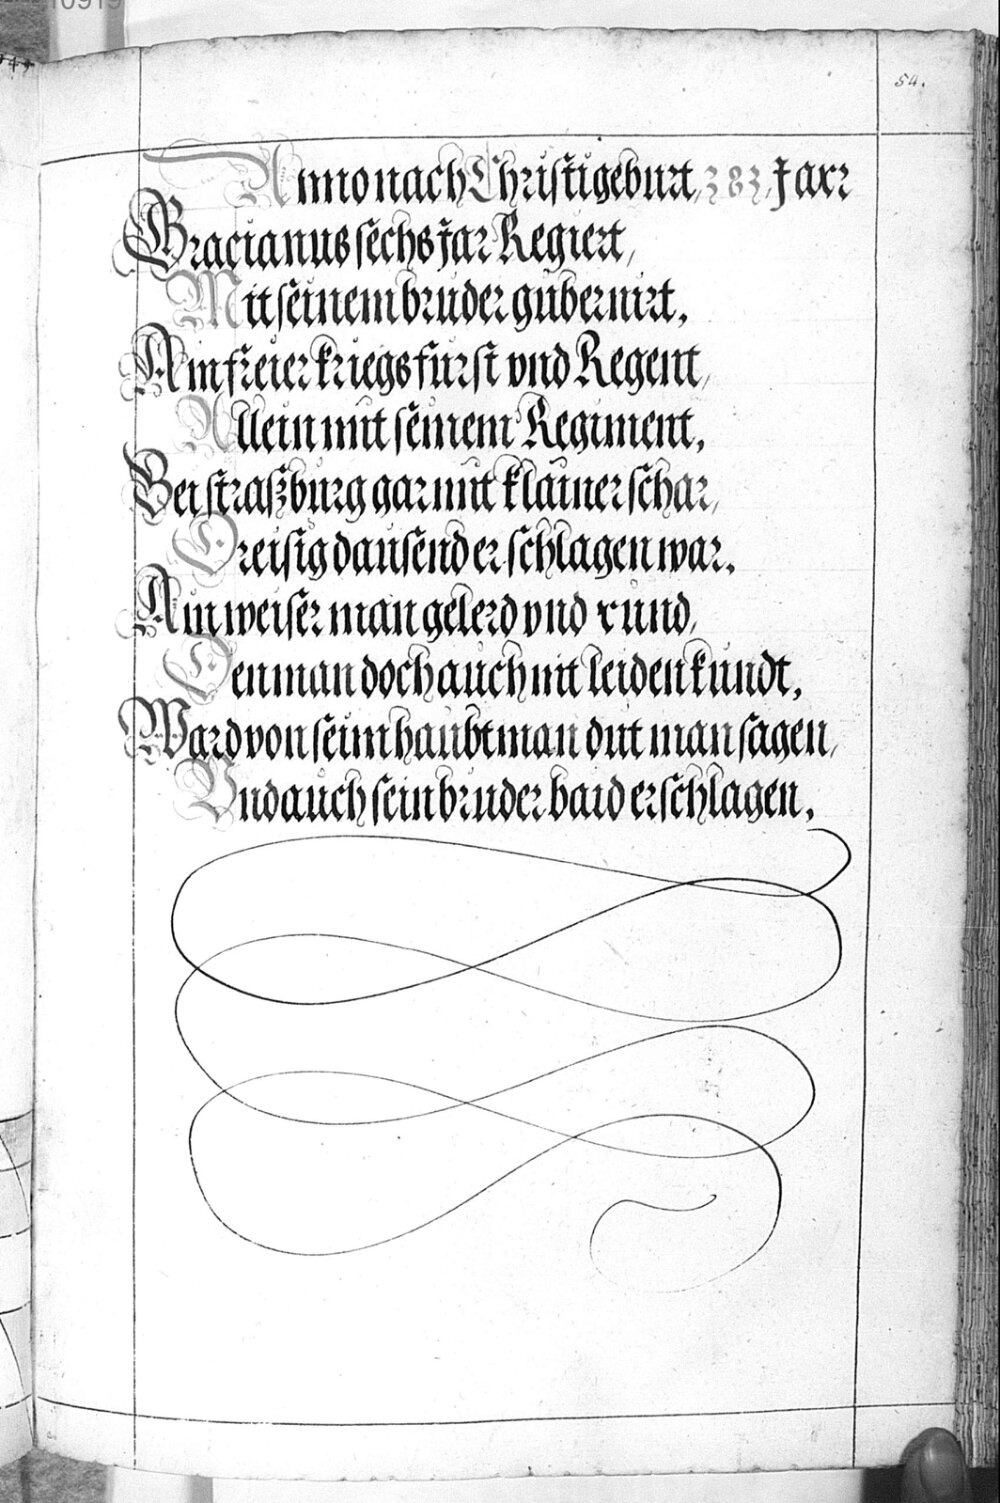 54.
Anno nach Christi geburt, 383, Jarr
Gracianus sechs Jar Regiert,
Mit seinem bruder gubernirt,
Ain freier kriegs fürst vnd Regent,
Allein mit seinem Regiment,
Bei straszburg gar mit klainer schar,
Dreisig dausend er schlagen war,
Ain weiser man gelerd vnd rund,
Den man doch auch nit leiden kundt,
Ward von seim haubtman dut man sagen,
Vnd auch sein bruder baid erschlagen,